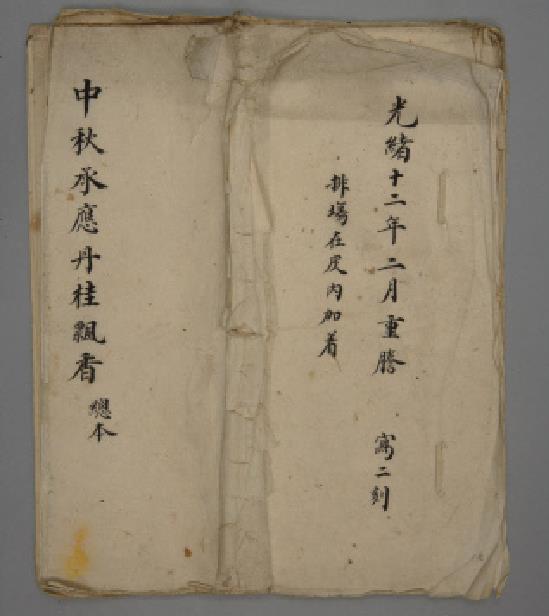 光緒十二年二月重謄 寫二刻
排場在皮内加着
中秋承應丹桂飄香 總本